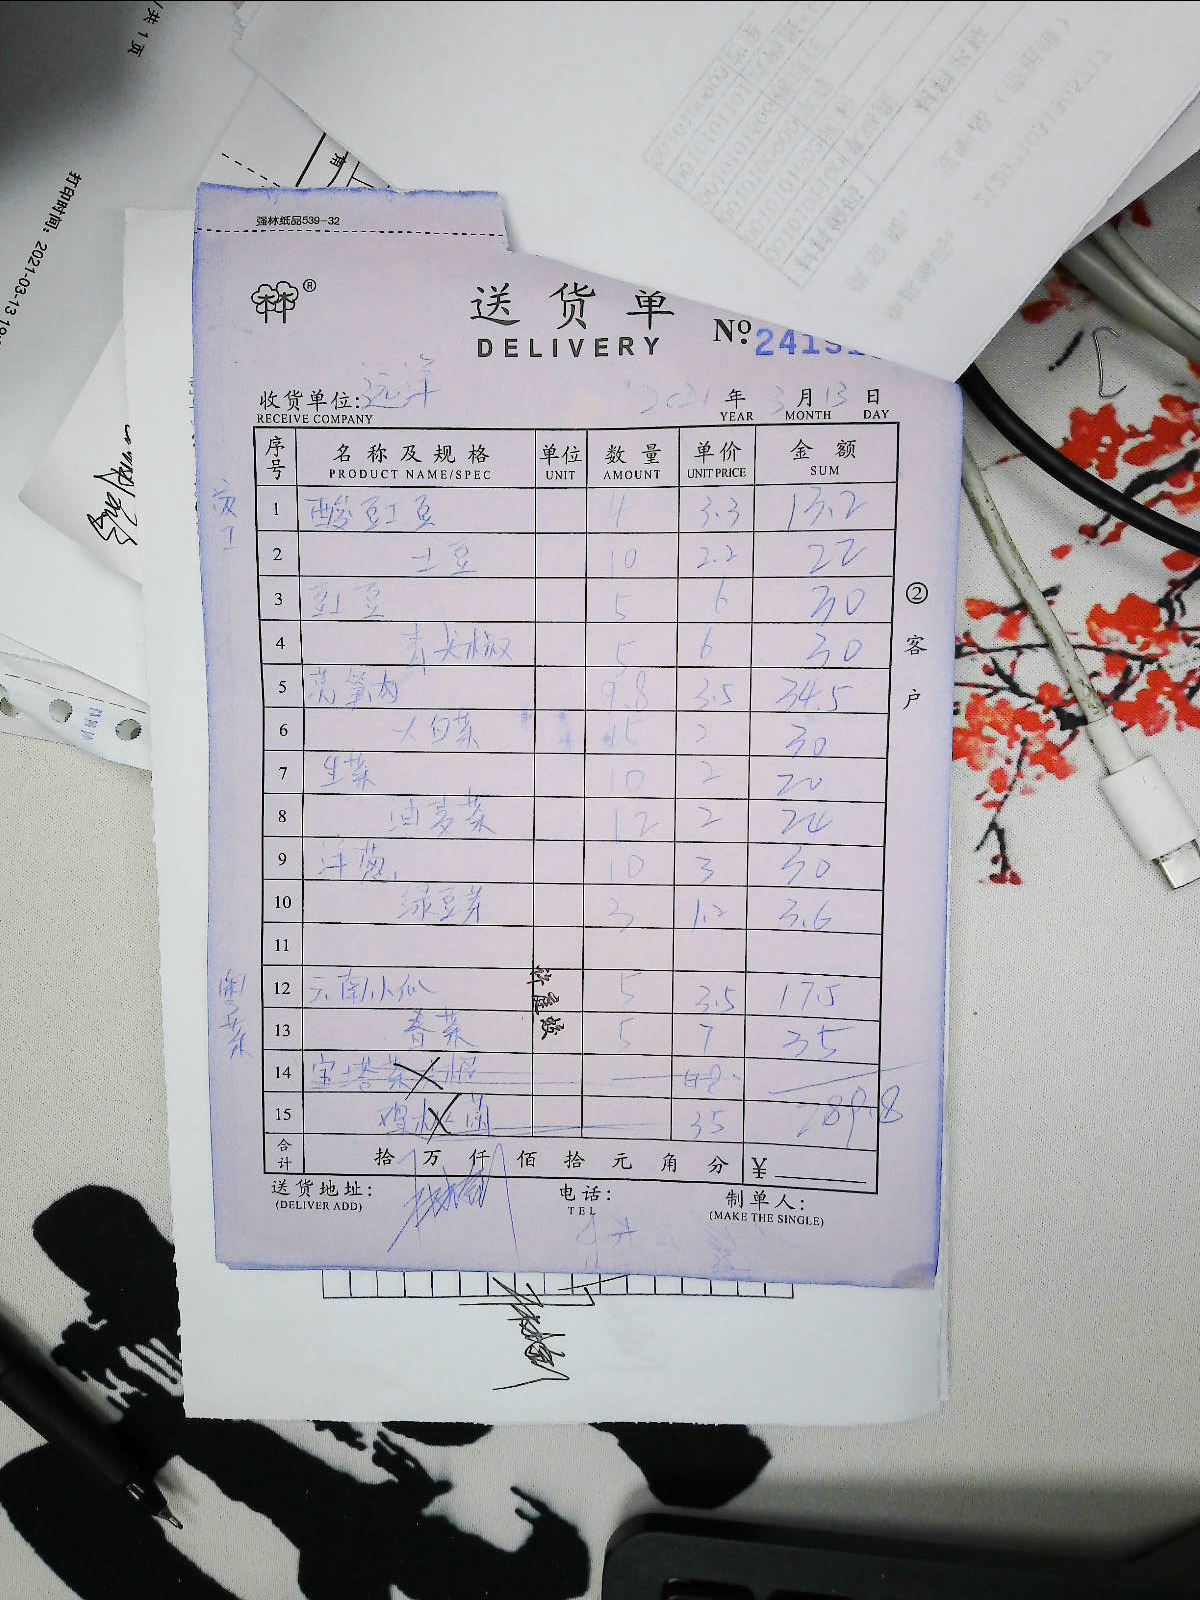 共 1 页
打印时间: 2021-03-13
强林纸品539-32
林®
送货单
DELIVERY
№ 2419
收货单位: 远洋 2021 年 3 月 13 日
RECEIVE COMPANY YEAR MONTH DAY
序号 名称及规格 单位 数量 单价 金额
PRODUCT NAME/SPEC UNIT AMOUNT UNIT PRICE SUM
1 酸豇豆 4 3.3 13.2
2 土豆 10 2.2 22
3 豇豆 5 6 30
4 青尖椒 5 6 30
5 莴笋肉 9.8 3.5 34.5
6 大白菜 15 2 30
7 生菜 10 2 20
8 油麦菜 12 2 24
9 洋葱 10 3 30
10 绿豆芽 3 1.2 3.6
11
12 云南小瓜 5 3.5 17.5
13 春菜 5 7 35
14 宝塔菜 48
15 鸡枞菌 35
289.8
合计 拾 万 仟 佰 拾 元 角 分 ¥
送货地址: 电话: 制单人:
(DELIVER ADD) TEL (MAKE THE SINGLE)
②客户